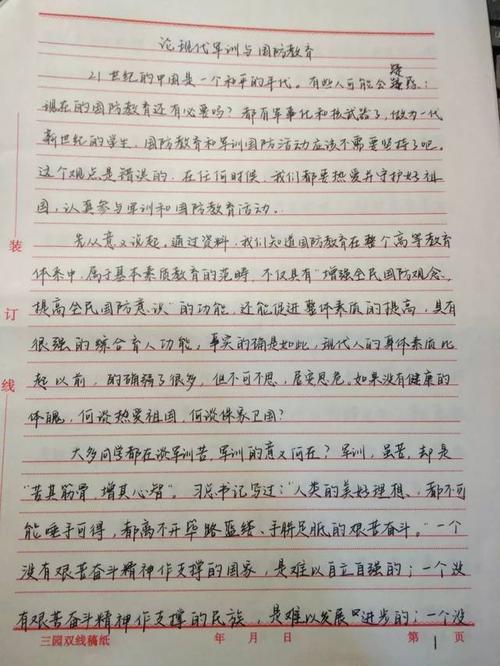 论现代军训与国防教育
21世纪的中国是一个和平的年代。有些人可能会疑惑：
现在的国防教育还有必要吗？都有军事化和核武器了，做为一代
新世纪的学生，国防教育和军训国防活动应该不需要坚持了吧。
这个观点是错误的，在任何时候，我们都要热爱并守护好祖
国，认真参与军训和国防教育活动。
先从意义说起。通过资料，我们知道国防教育在整个高等教育
体系中，属于基本素质教育的范畴，不仅具有"增强全民国防观念、
提高全民国防意识"的功能，还能促进整体素质的提高，具有
很强的综合育人功能，事实的确是如此，现代人的身体素质比
起以前，的确弱了很多，但不可不思，居安思危。如果没有健康的
体魄，何谈热爱祖国，何谈保家卫国？
大多同学都在谈军训苦，军训的意义何在？军训，虽苦，却是
"苦其筋骨，增其心智"。习总书记写过："人类的美好理想、都不可
能唾手可得，都离不开筚路蓝缕、手胼足胝的艰苦奋斗。"一个
没有艰苦奋斗精神作支撑的国家，是难以自立自强的；一个没
有艰苦奋斗精神作支撑的民族，是难以发展进步的；一个没
装
订
线
三园双线稿纸 年 月 日 第 1 页